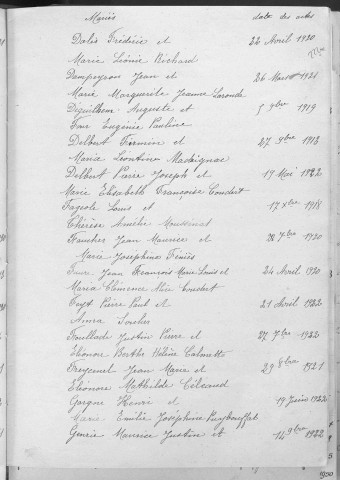 Mariés date des actes
Dalis Frédéric et 22 Avril 1920
Marie Léonie Richard
Dampeyron Jean et 26 Mars 1921
Marie Marguerite Jeanne Laronde
Diguilhem Auguste et 5 9bre 1919
Faur Eugénie Pauline
Delbert Firmine et 27 9bre 1918
Maria Léontine Madrignac
Delbert Pierre Joseph et 19 Mai 1922
Marie Elisabeth Françoise Coudert
Fageole Louis et 17 xbre 1918
Thérèse Amélie Moussinat
Faucher Jean Maurice et 7bre 1920
Marie Joséphine
Jean François Marie Louis et 24 Avril 1920
Maria Clémence Coudert
Feyt Pierre Paul et 21 Avril 1922
Anna Soulier
Fouillade Justin Pierre et 27 7bre 1922
Eléonore Berthe Hélène Calmette
Freyssinel Jean Marie et 29 8bre 1921
Eléonore Mathilde
Gargne Henri et 19 Juin 1922
Marie Emilie Joséphine Puybouffat
Maurice Justin et 14 9bre 1922